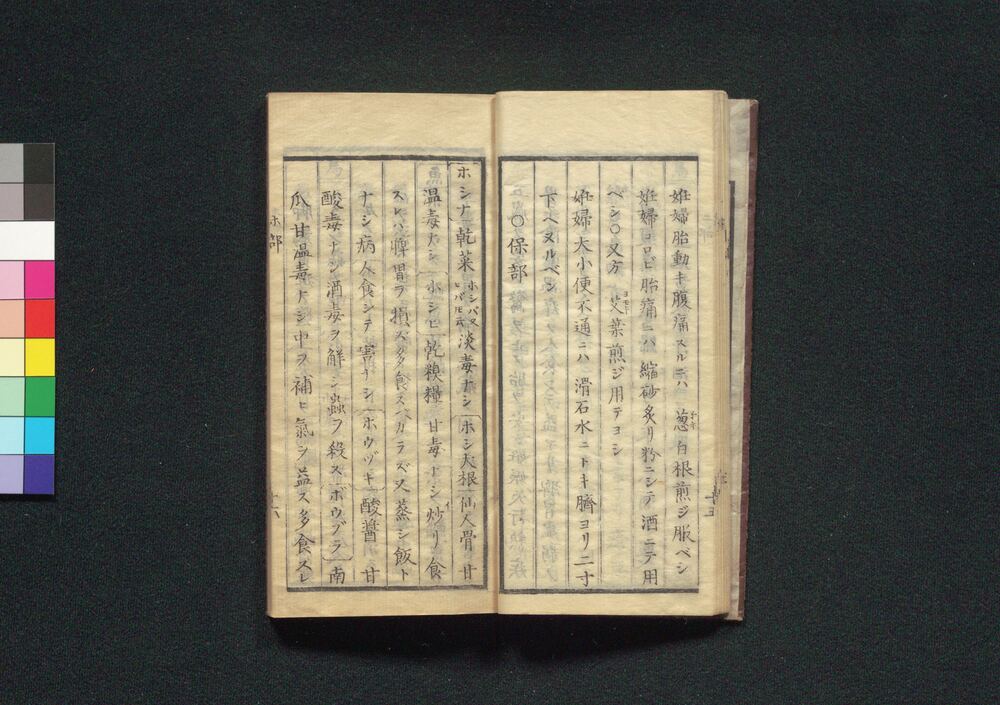 妊婦胎動キ腹痛スルニハ 葱白根煎ジ服ベシ
妊婦コロビ胎痛ニハ 縮砂炙リ粉ニシテ酒ニテ用
ベシ〇又方 艾葉煎ジ用テヨシ
妊婦大小便不通ニハ 滑石水ニトキ臍ヨリ二寸
下ヘヌルベシ
〇保部
ホシナ 乾菜 淡毒ナシ ホシ大根 仙人骨 甘
温毒ナシ ホシヒ 乾糗糧 甘毒ナシ炒リ食
スレハ脾胃ヲ損ズ多食スベカラズ又蒸シ飯ト
ナシ病人食シテ害ナシ ホウヅキ 酸醤 甘
酸毒ナシ酒毒ヲ解シ蟲ヲ殺ス ボウブラ 南
瓜 甘温毒ナシ中ヲ補ヒ氣ヲ益ス多食スレ
ホ部